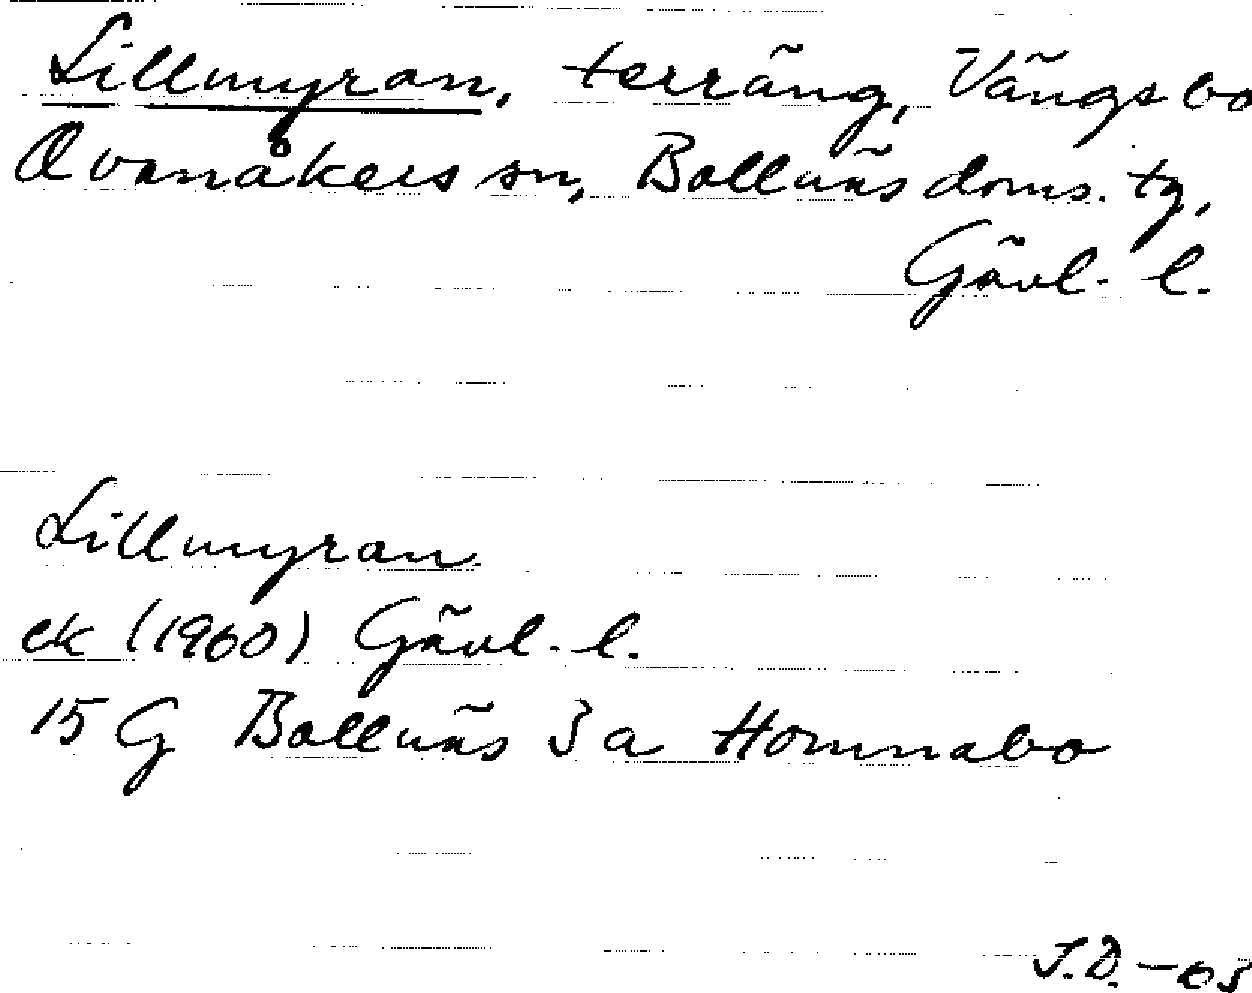 Lillmyran, terräng, Vängsbo
Ovanåkers sn, Bollnäs doms. tg,
Gävl. l.
Lillmyran
ek (1960) Gävl. l.
15 G Bollnäs 3 a Homnabo
J.D. - 03